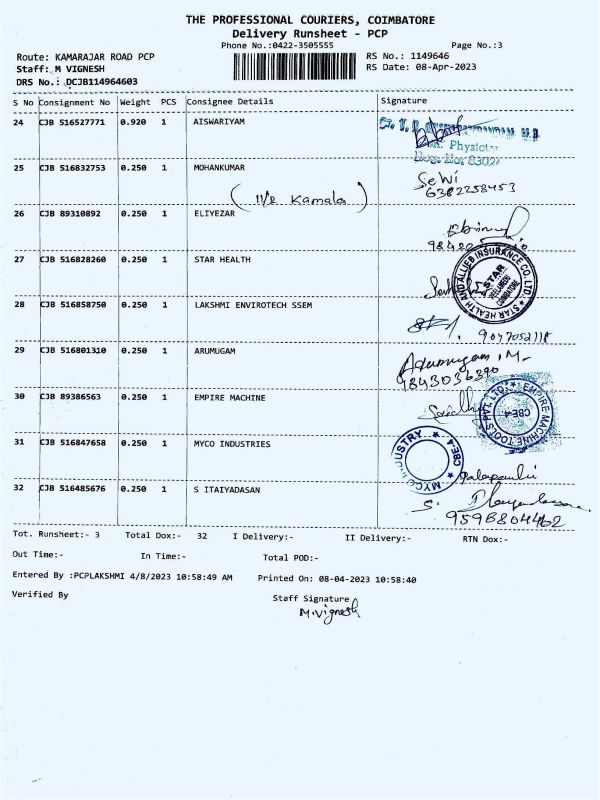 THE PROFESSIONAL COURIERS, COIMBATORE
Delivery Runsheet - PCP
Phone No.:0422-3505555
Page No.:3
Route: KAMARAJAR ROAD PCP
RS No.: 1149646
Staff: M VIGNESH
RS Date: 08-Apr-2023
DRS No.: DCJB114964603
S No Consignment No Weight PCS Consignee Details Signature
24 CJB 516527771 0.920 1 AISWARIYAM
Physician
25 CJB 516832753 0.250 1 MOHANKUMAR
Selvi
6382258453
(M/s Kamala)
26 CJB 89310892 0.250 1 ELIYEZAR
27 CJB 516828260 0.250 1 STAR HEALTH
STAR HEALTH AND ALLIED INSURANCE CO. LTD.
STAR
COIMBATORE
28 CJB 516858750 0.250 1 LAKSHMI ENVIROTECH SSEM
9047052118
29 CJB 516801310 0.250 1 ARUMUGAM
Arumugam .M
9843036390
30 CJB 89386563 0.250 1 EMPIRE MACHINE
EMPIRE MACHINE TOOLS PVT. LTD.
CBE-4
31 CJB 516847658 0.250 1 MYCO INDUSTRIES
MYCO INDUSTRY
CBE-4
32 CJB 516485676 0.250 1 S ITAIYADASAN
S.
9596804462
Tot. Runsheet:- 3 Total Dox:- 32 I Delivery:- II Delivery:- RTN Dox:-
Out Time:- In Time:- Total POD:-
Entered By :PCPLAKSHMI 4/8/2023 10:58:49 AM Printed On: 08-04-2023 10:58:40
Verified By Staff Signature
M.Vignesh